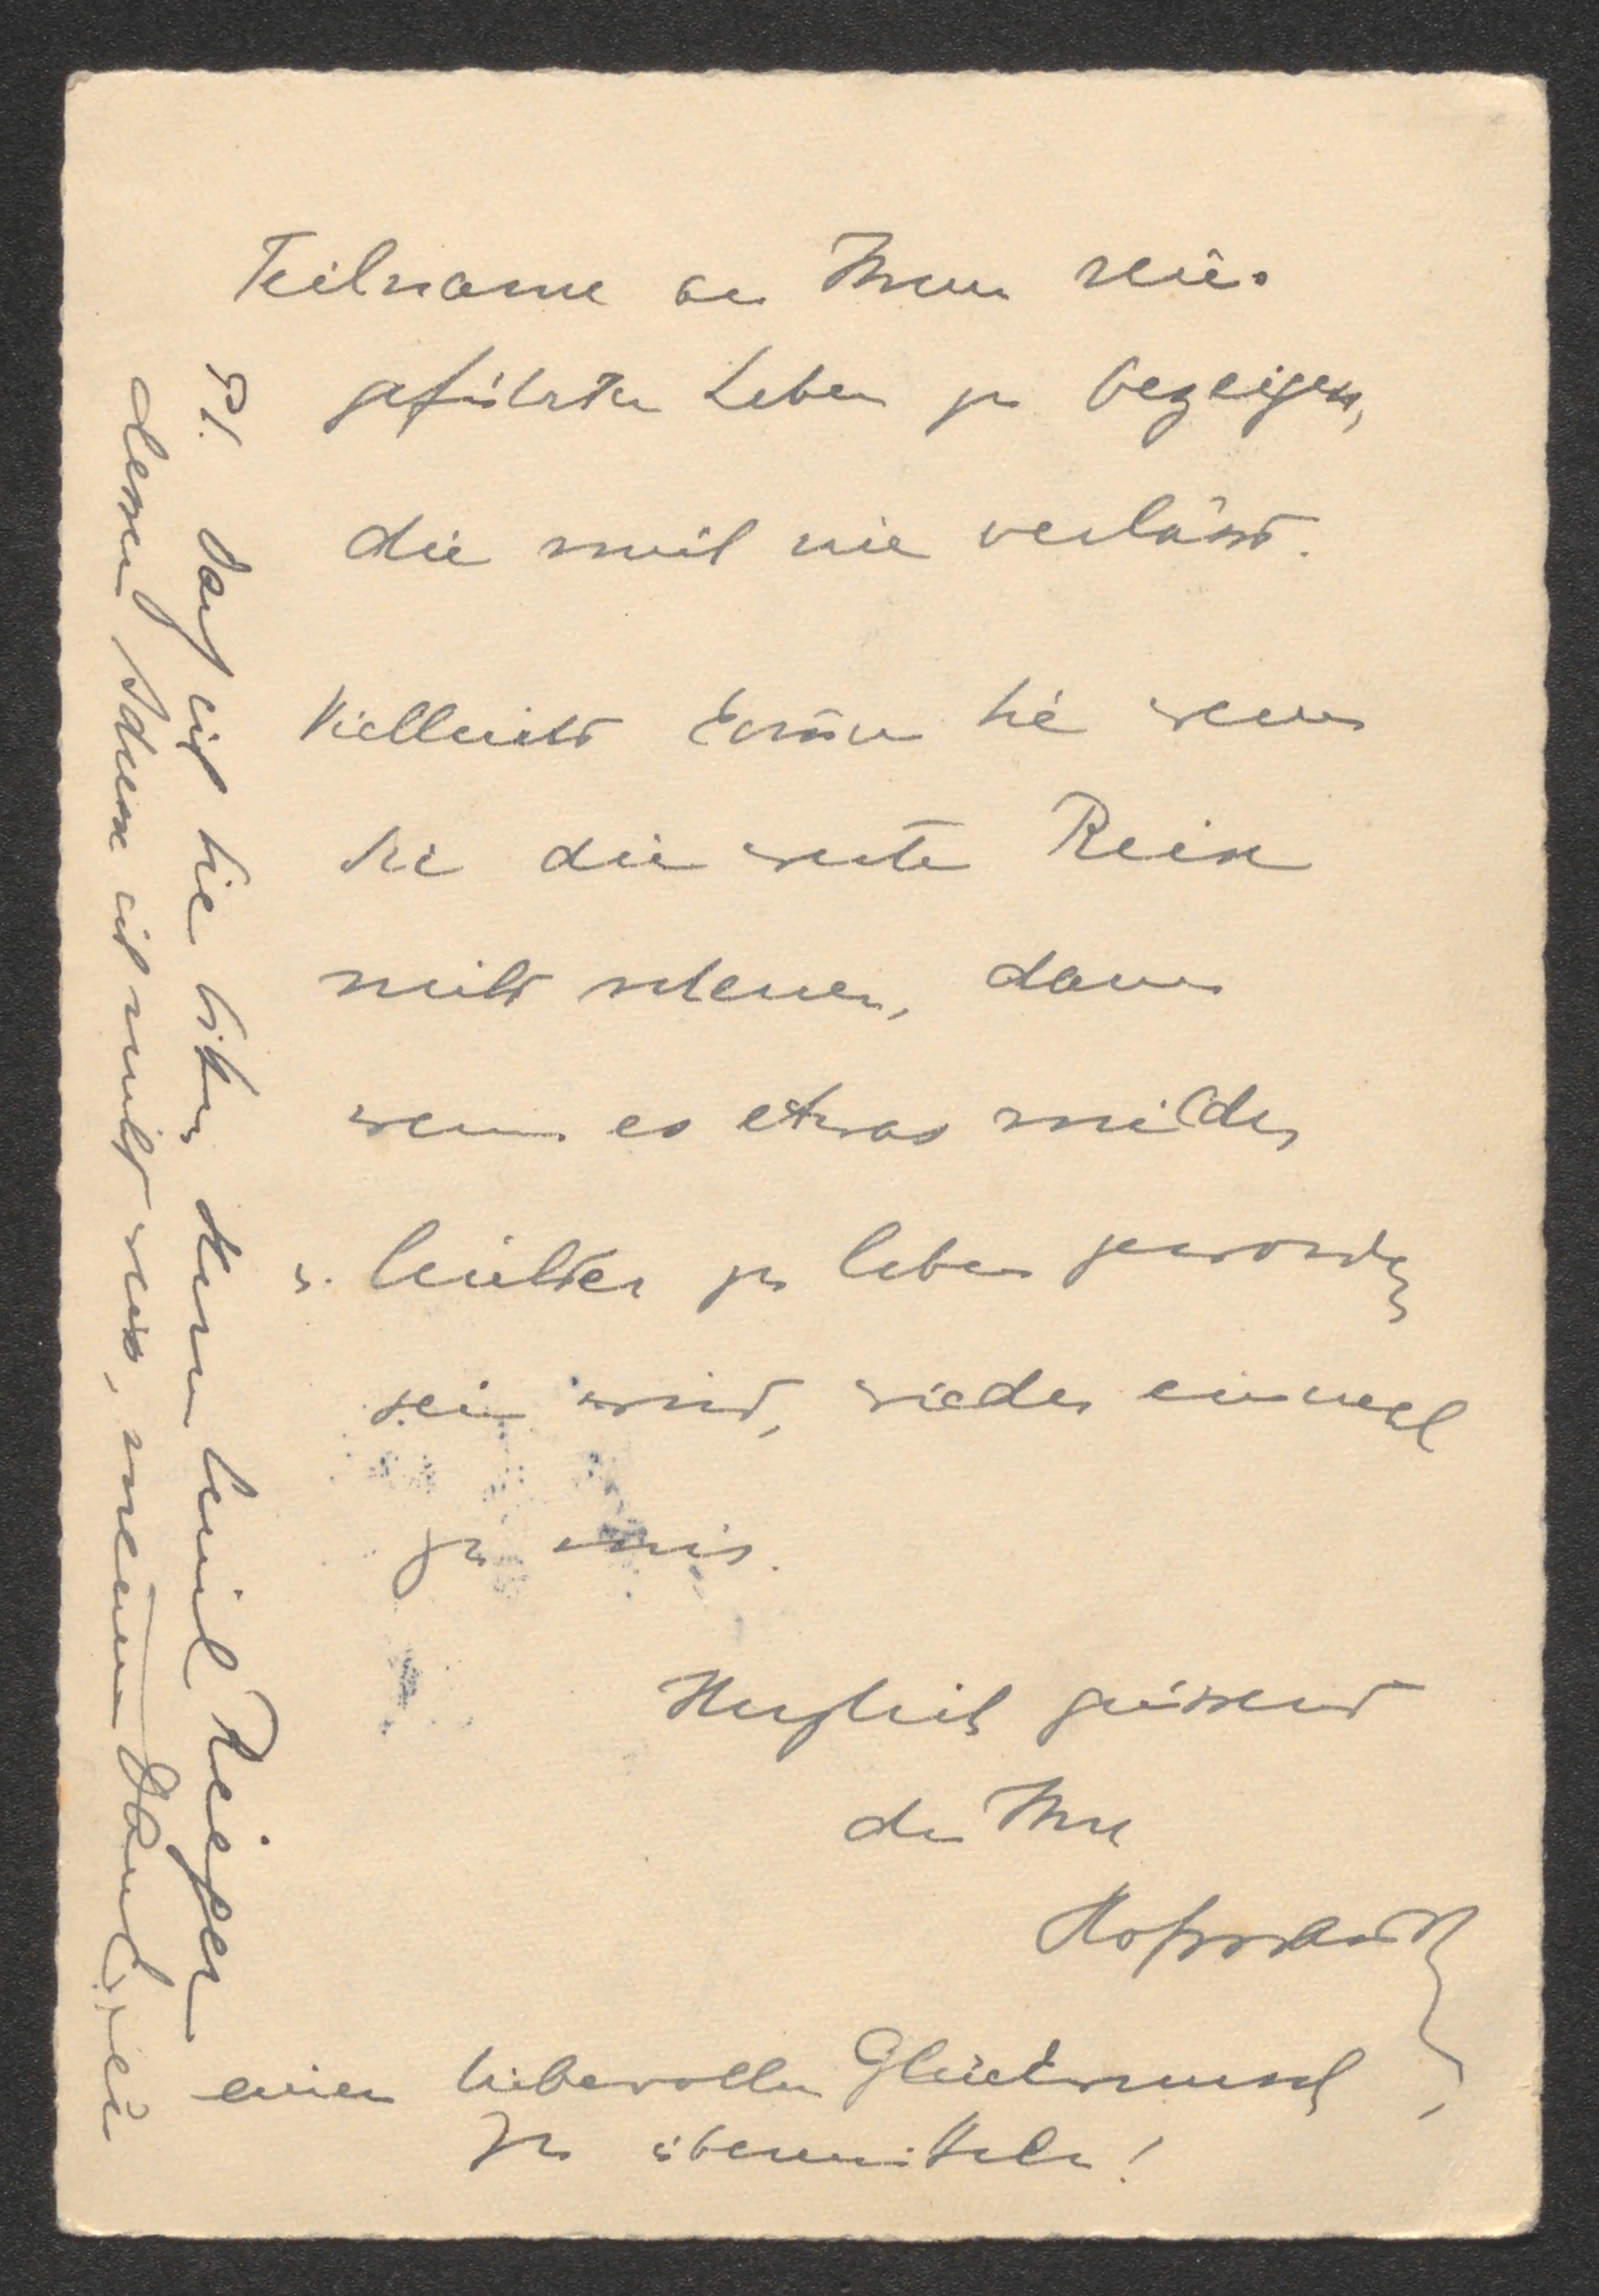 Teilname an Ihrem rein
geführten Leben zu bezeigen,
die mich nie verlässt.
Vielleicht kommen Sie wenn
Sie die weite Reise
nicht scheuen, dann
wenn es etwas milder
u. leichter zu leben geworden
sein wird, wieder einmal
zu mir.
Herzlich grüssend
der Ihre
PS. Darf ich Sie bitten Herrn Reisiger
dessen Adresse ich nicht weis, meinen Dank
einen liebevollen Glückwunsch
zu übermitteln!